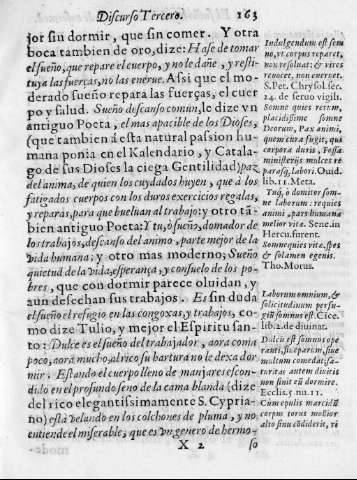 Discurso Tercero. 163
jor sin dormir, que sin comer. Y otra
boca tambien de oro, dize: Hase de tomar
el sueño, que repare el cuerpo, y no le dañe, y resti-
tuya las fuerças, no las enerue. Assi que el mo-
derado sueño repara las fuerças, el cuer
po y salud. Sueño descanso común, le dize vn
antiguo Poeta, el mas apacible de los Dioses,
(que tambien á esta natural passion hu-
mana ponia en el Kalendario, y Catala-
go de sus Dioses la ciega Gentilidad) paz
del anima, de quien los cuydados huyen, que á los
fatigados cuerpos con los duros exercicios regalas,
y reparas, para que bueluan al trabajo: y otro tā
bien antiguo Poeta: Y tu, ò sueño, domador de
los trabajos, descanso del animo, parte mejor de la
vida humana; y otro mas moderno; Sueño
quietud de la vida, esperança, y consuelo de los po-
bres, que con dormir parece oluidan, y
aun desechan sus trabajos. Es sin duda
el sueño el refugio en las congoxas, y trabajos, co
mo dize Tulio, y mejor el Espiritu san-
to: Dulce es el sueño del trabajador, aora coma
poco, aora mucho, al rico su hartura no le dexa dor
mir. Estando el cuerpo lleno de manjares escon-
dido en el profundo seno de la cama blanda (dize
del rico elegantissimamente S. Cypria-
no) està velando en los colchones de pluma, y no
entiende el miserable, que es vn genero de hermo-
X 2 so
Indulgendum est som
no, vt corpus reparet,
non resoluat: & vires
reuocet, non eneruet.
S. Pet. Chrysol. ser.
24. de seruo vigil.
Somne quies rerum,
placidissime somne
Deorum, Pax animi,
quem cura fugit, qui
corpora duris, Fessa
ministerijs mulces re
parasq, labori. Ouid.
lib. 11. Meta.
Tuq, ò domitor som-
ne laborum: requies
animi, pars humanæ
melior vitæ. Sene. in
Hercu. furent.
Somne quies vitæ, spes
& solamen egenis.
Tho. Morus.
Laborum omnium, &
solicitudinum perfu-
giū somnus est. Cice.
lib. 2. de diuinat.
Dulcis est somnus ope
ranti, siue parum, siue
multum comedat; sa-
turitas autem diuitis
non sinit eū dormire.
Eccles. 5. nu. 11.
Cum epulis marcidū
corpus torus mollior
alto sinu cōdiderit, vi